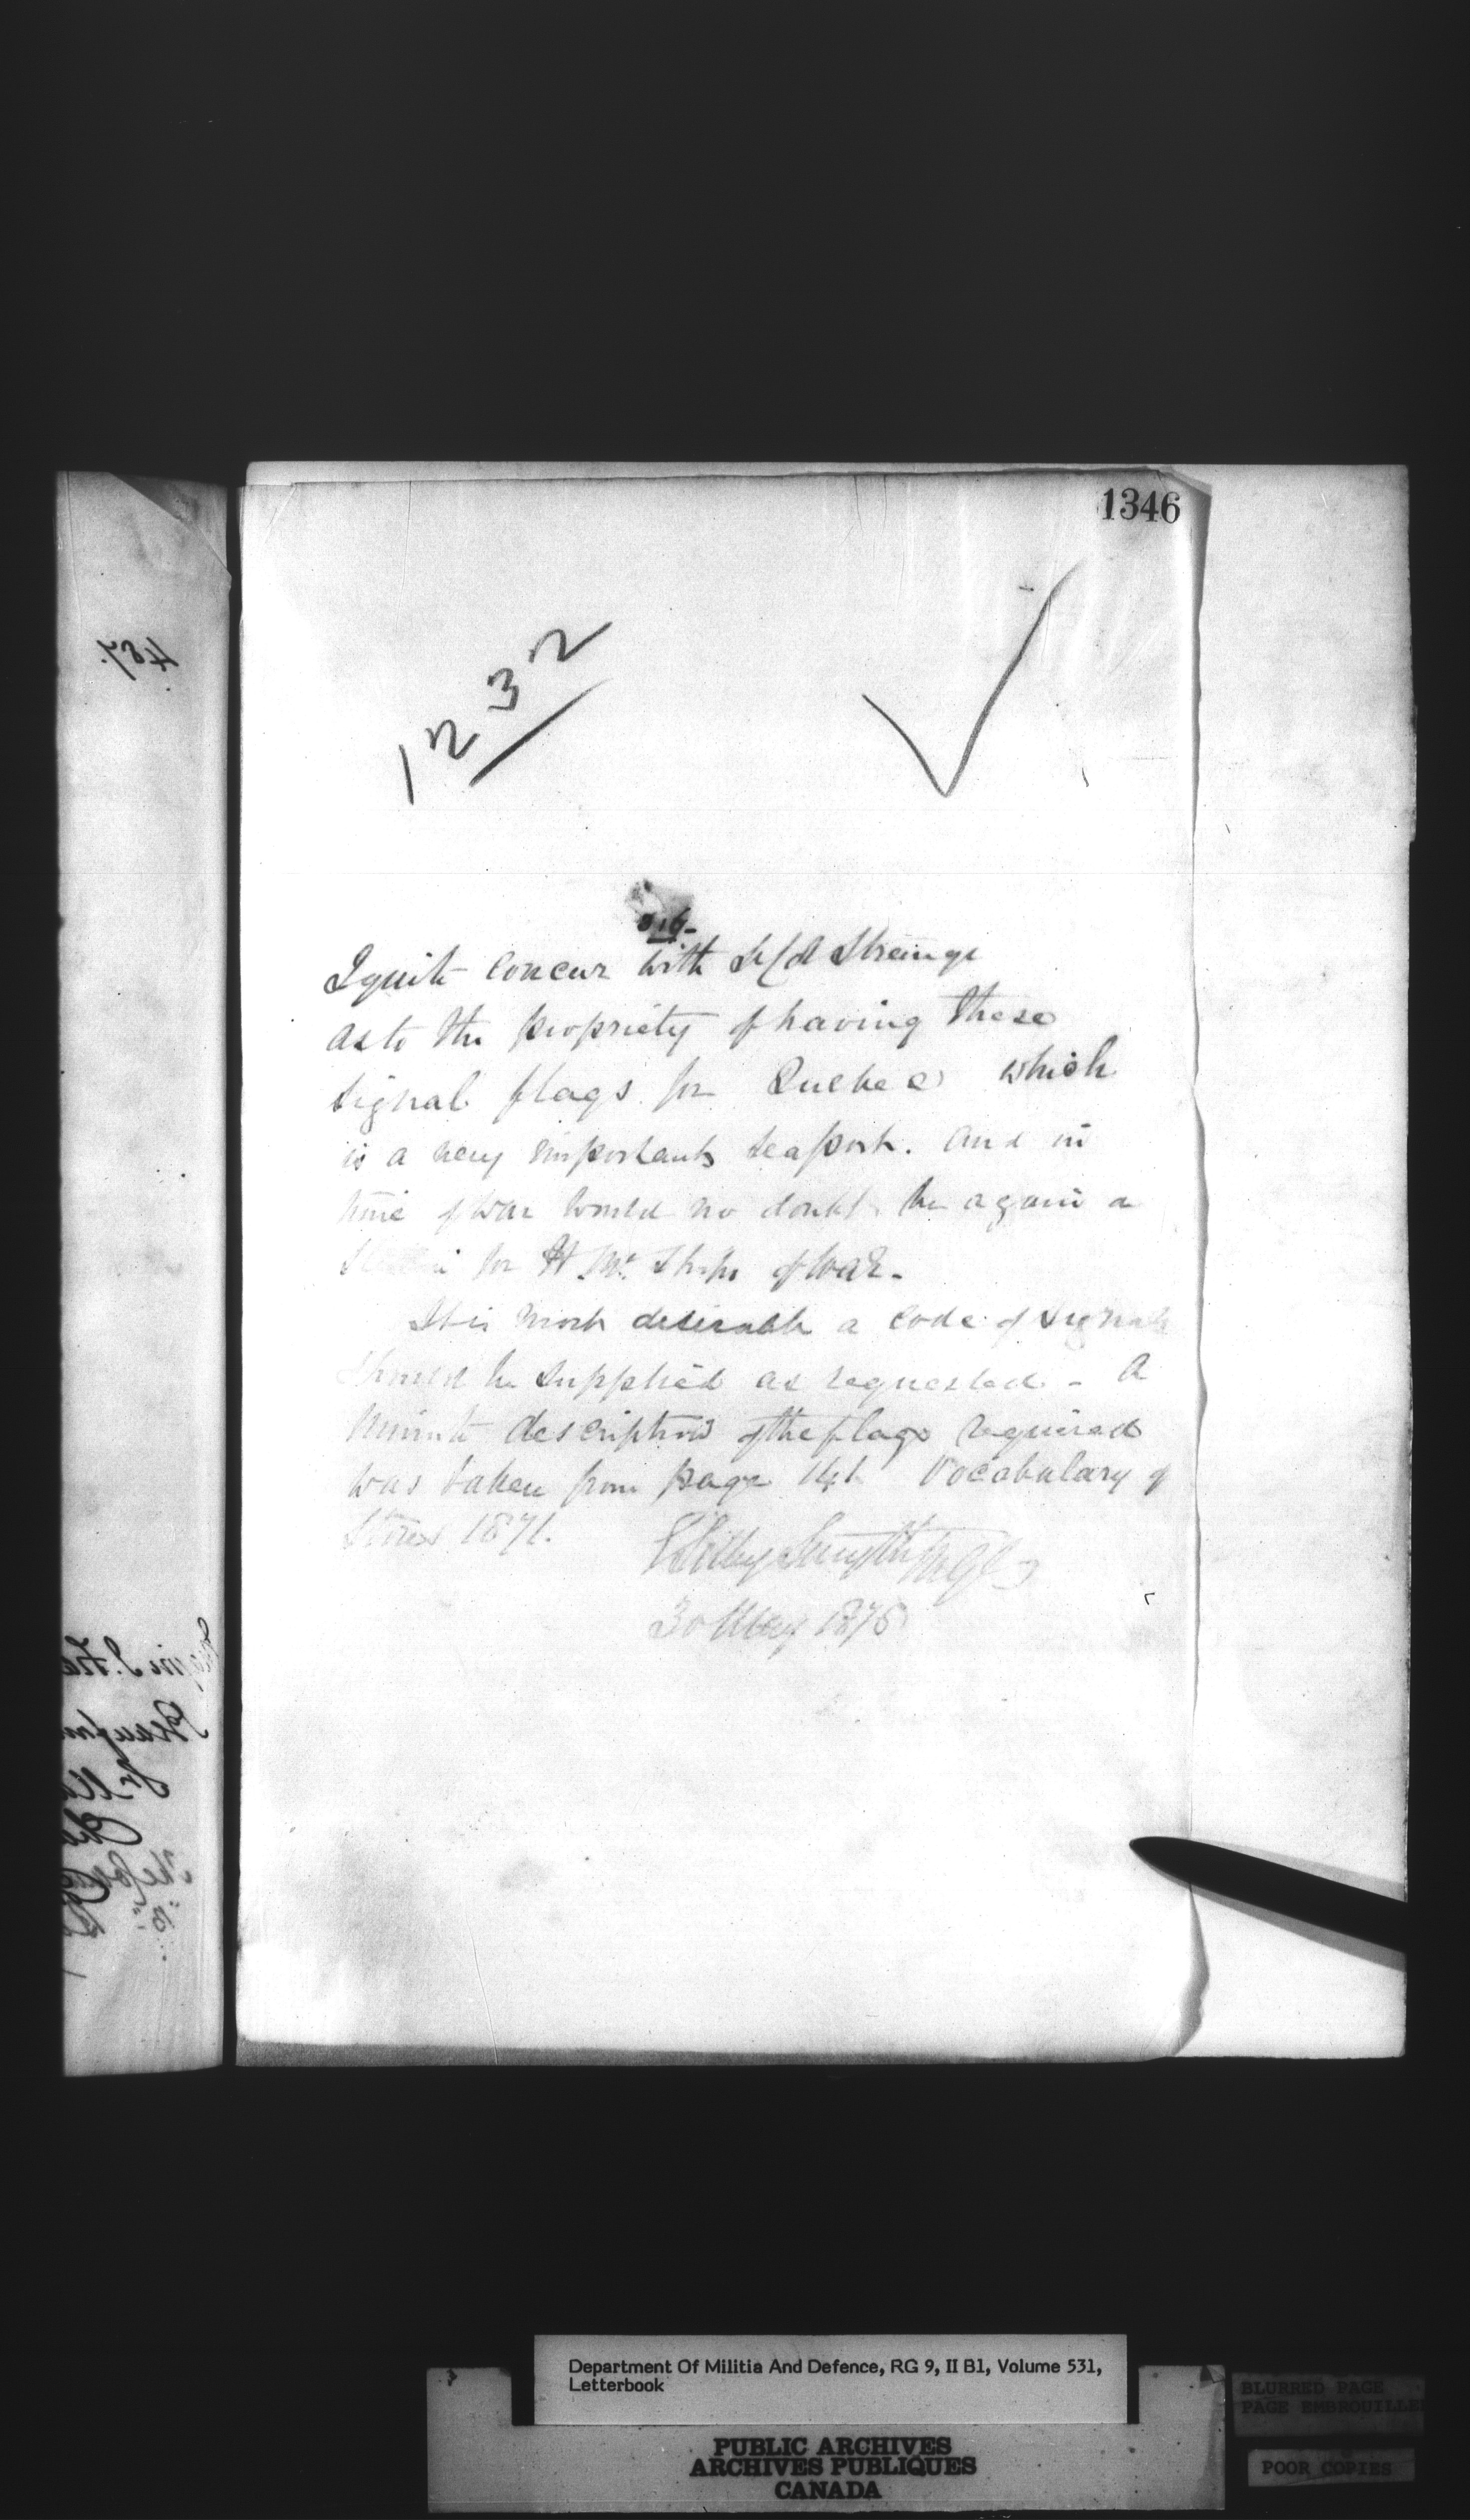 1346
1232
I quite concur with Lt Col Strange
as to the propriety of having these
signal flags for Quebec which
is a very important seaport. And in
time of war would no doubt be again a
for H.M. Ships of war.
It is most desirable a code of signals
should be supplied as requested - A
minute description of the flags required
was taken from page 141 Vocabulary of
Stores 1871.
E Selby Smyth MG
30 May 1876
487.
Department Of Militia And Defence, RG 9, II B1, Volume 531,
Letterbook
PUBLIC ARCHIVES
ARCHIVES PUBLIQUES
CANADA
BLURRED PAGE
PAGE EMBROUILLE
POOR COPIES